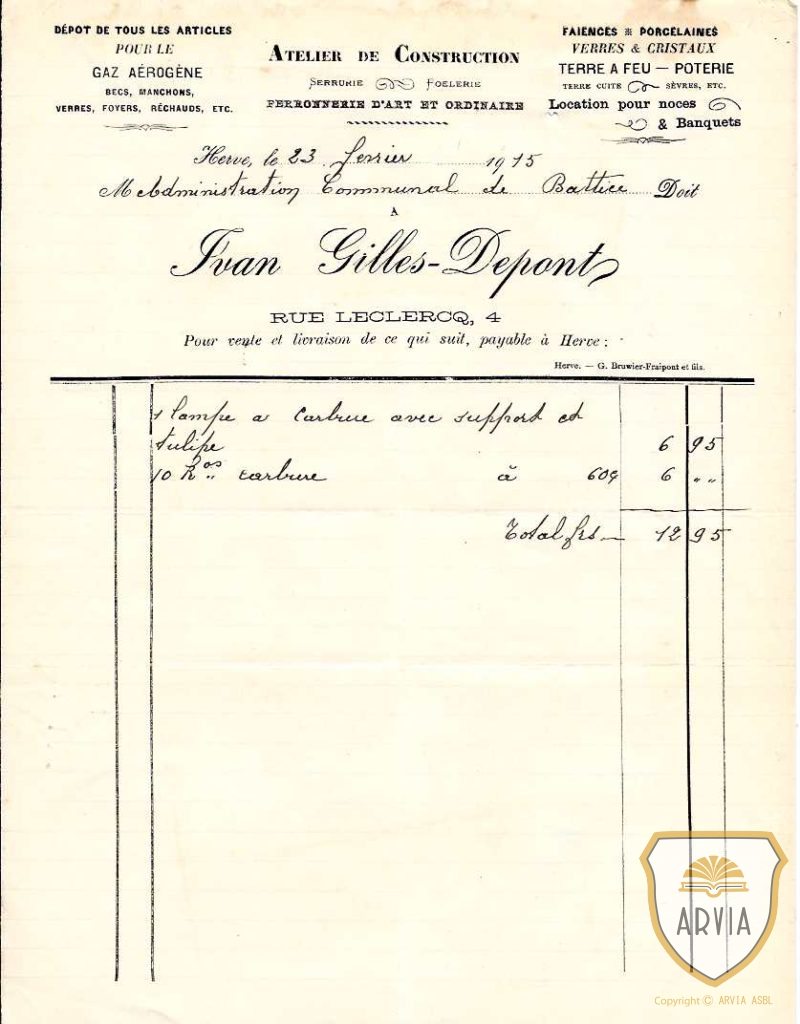 DÉPOT DE TOUS LES ARTICLES
POUR LE
GAZ AÉROGÈNE
BECS, MANCHONS,
VERRES, FOYERS, RÉCHAUDS, ETC.
ATELIER DE CONSTRUCTION
SERRURIE POELERIE
FERRONNERIE D'ART ET ORDINAIRE
FAIENCES ※ PORCELAINES
VERRES & CRISTAUX
TERRE A FEU — POTERIE
TERRE CUITE SÈVRES, ETC.
Location pour noces
& Banquets
Herve, le 23 fevrier 1915
M Administration Communal de Battice Doit
A
Ivan Gilles-Depont
RUE LECLERCQ, 4
Pour vente et livraison de ce qui suit, payable à Herve :
Herve. — G. Bruwier-Fraipont et fils.
1 lampe a Carbure avec support et
tulipe 6 95
10 Kos carbure à 60c 6 " "
Total frs — 12 95
ARVIA
Copyright © ARVIA ASBL